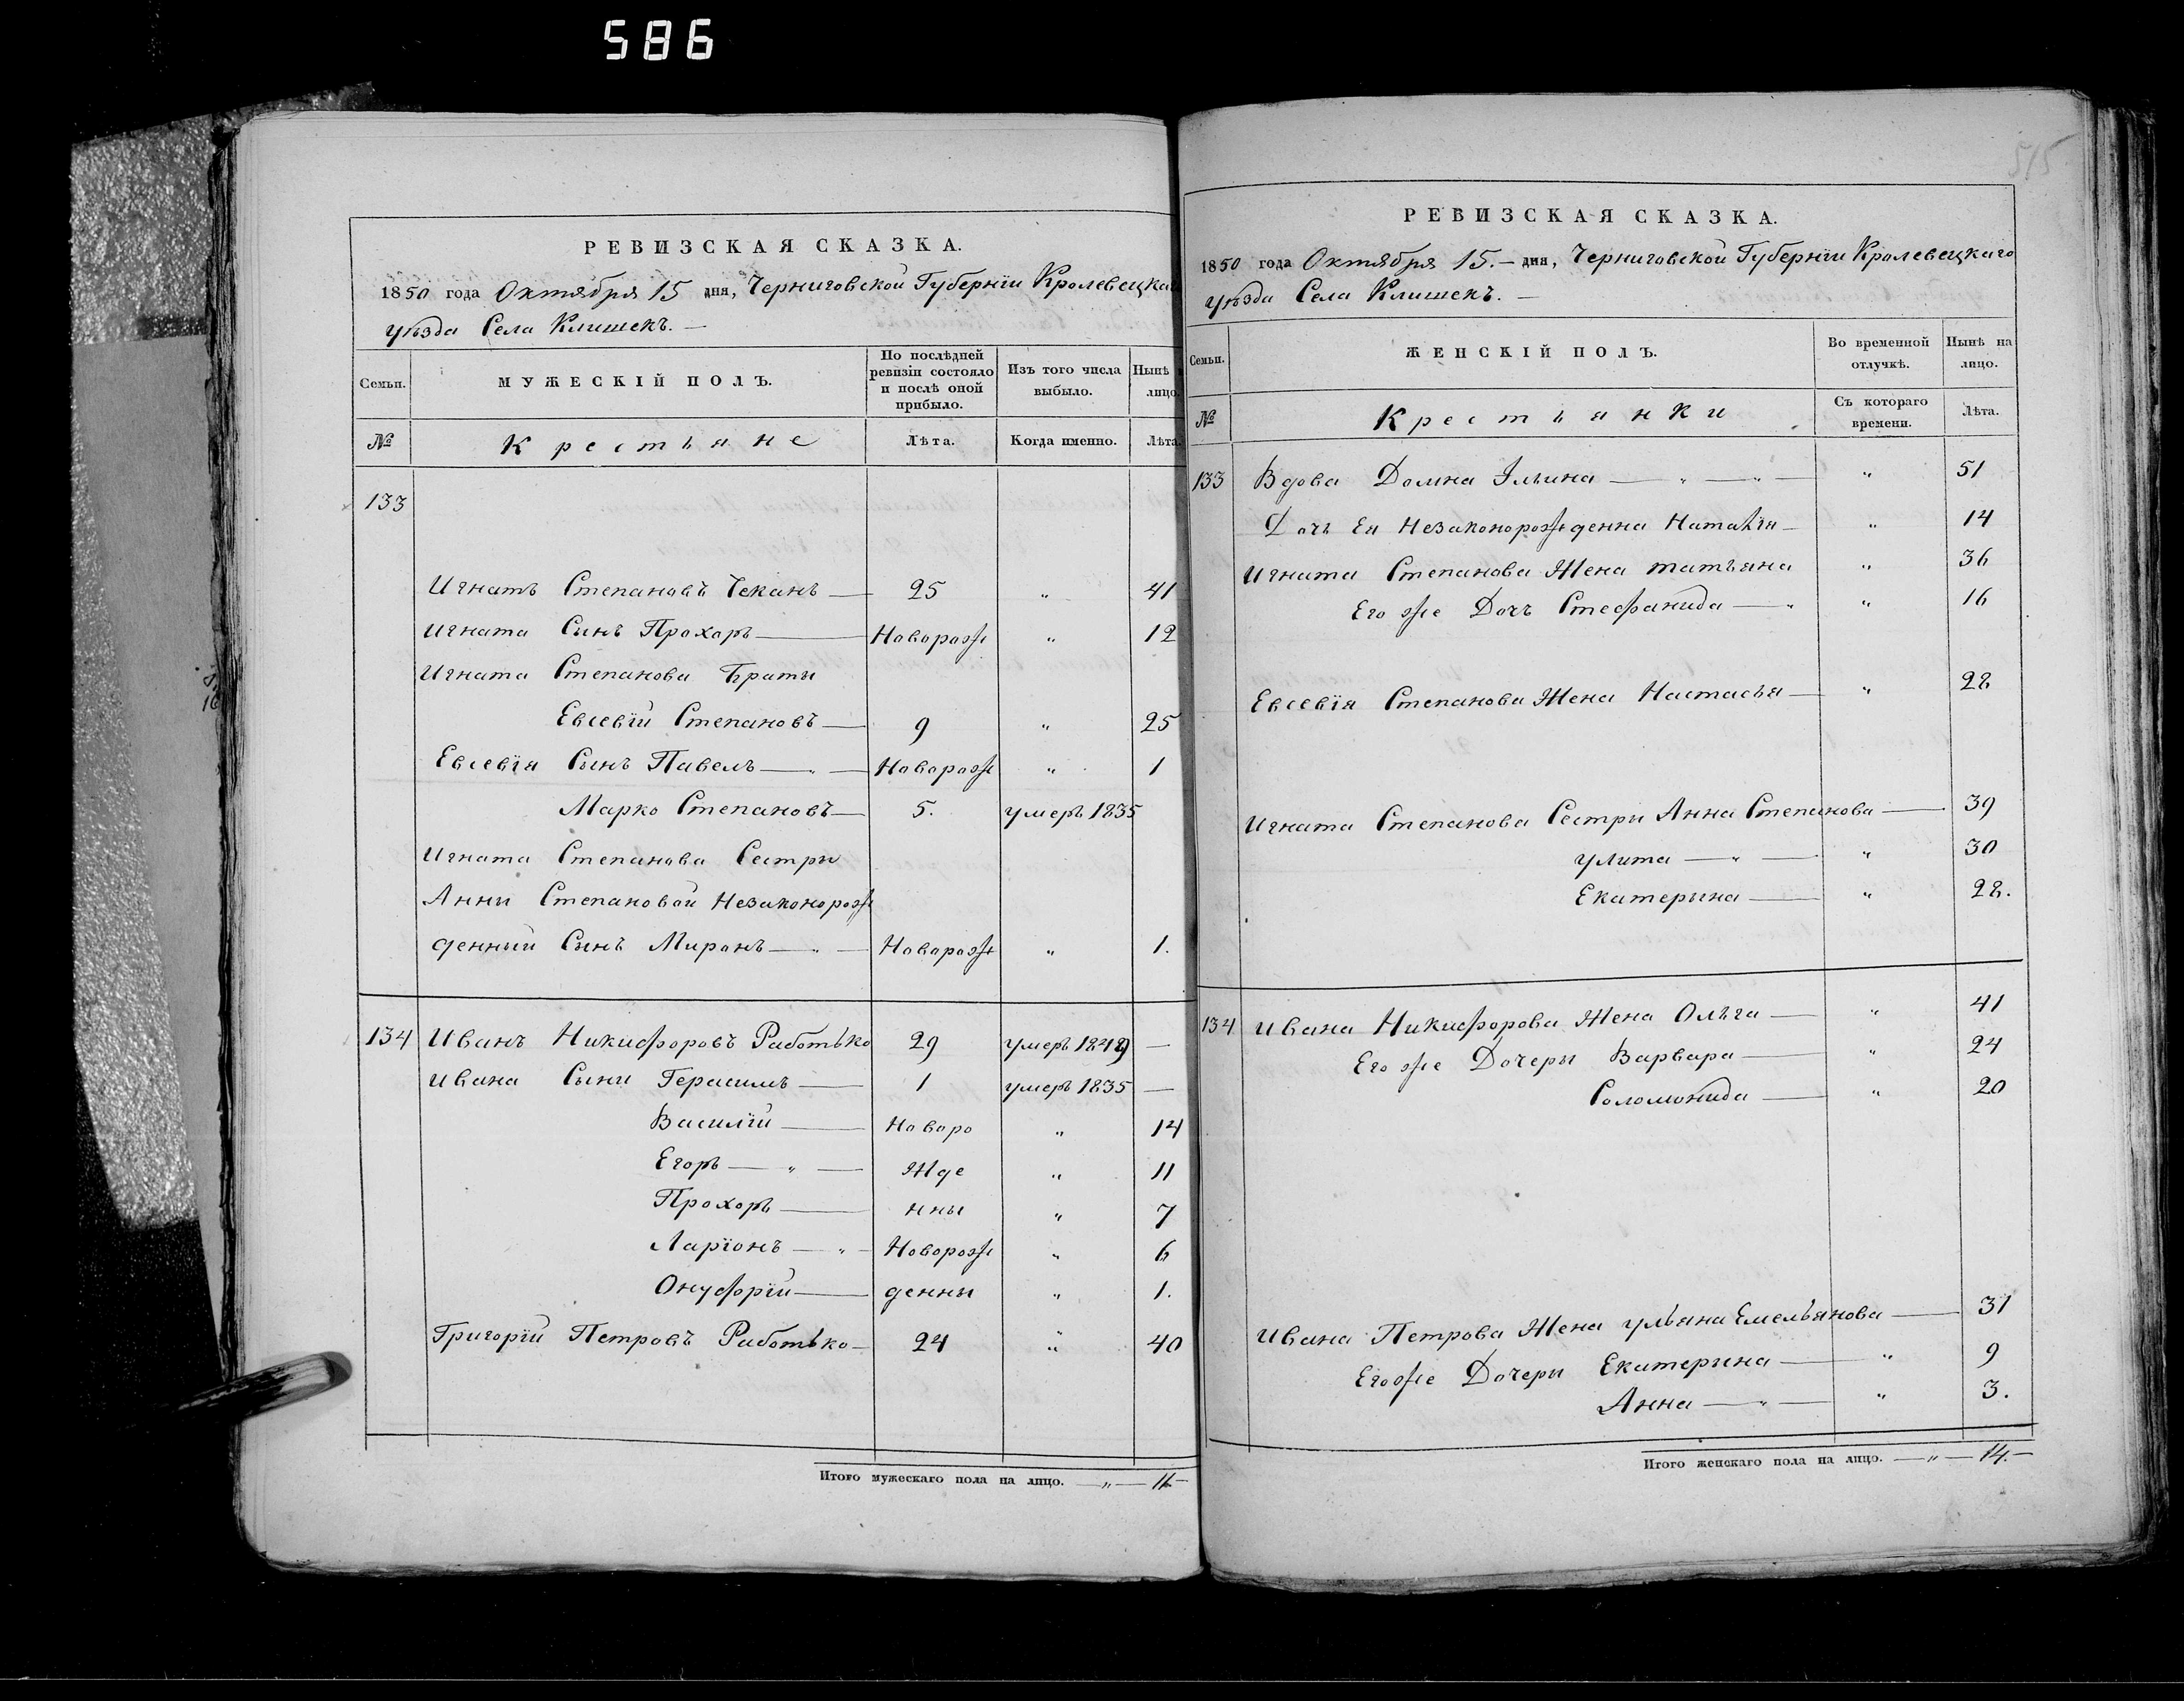 586
РЕВИЗСКАЯ СКАЗКА.
1850 года Октября 15 дня, Черниговской Губернїи Кролевецкаго
уѣзда Села Клишекъ. —
Семьи.
МУЖЕСКІЙ ПОЛЪ.
По послѣдней ревизіи состояло и послѣ оной прибыло.
Изъ того числа выбыло.
Нынѣ на лицо.
№
Крестьяне
Лѣта.
Когда именно.
Лѣта.
133
Игнатъ Степановъ Чеканъ — 25 „ 41
Игната Сынъ Прохоръ — Новорож „ 12
Игната Степанова Браты
Евсевїй Степановъ — 9 „ 25
Евсевїя Сынъ Павелъ — „ — Новорож „ 1
Марко Степановъ — 5. умеръ 1835
Игната Степанова Сестры
Анны Степановой Незаконорож
денный Сынъ Миронъ — „ — Новорож „ 1.
134 Иванъ Никифоровъ Работько 29 умеръ 1849 —
Ивана Сыны Герасимъ — 1 умеръ 1835 —
Василїй — Новоро „ 14
Егоръ — „ — жде „ 11
Прохоръ — нны „ 7
Ларїонъ — „ — Новорож „ 6
Онуфрїй — денны „ 1.
Григорїй Петровъ Работько — 24 „ 40
Итого мужескаго пола на лицо. — „ — 11 —
515
РЕВИЗСКАЯ СКАЗКА.
1850 года Октября 15. — дня, Черниговской Губернїи Кролевецкаго
уѣзда Села Клишекъ. —
Семьи.
ЖЕНСКІЙ ПОЛЪ.
Во временной отлучкѣ.
Нынѣ на лицо.
№
Крестьянки
Съ котораго времени.
Лѣта.
133 Вдова Домна Ильина — „ — „ — „ 51
Дочь Ея Незаконорожденна Наталїя — „ 14
Игната Степанова Жена татьяна „ 36
Его же Дочь Стефанида — „ „ 16
Евсевїя Степанова Жена Настасья — „ 28
Игната Степанова Сестры Анна Степанова — 39
улита — „ — „ 30
Екатерына — „ 28.
134 Ивана Никифорова Жена Ольга — „ 41
Его же Дочеры Варвара — „ 24
Соломонида — „ 20
Ивана Петрова Жена ульяна Емельянова — 31
Его же Дочеры Екатерына — „ 9
Анна — „ — „ 3.
Итого женскаго пола на лицо. — „ — 14. —